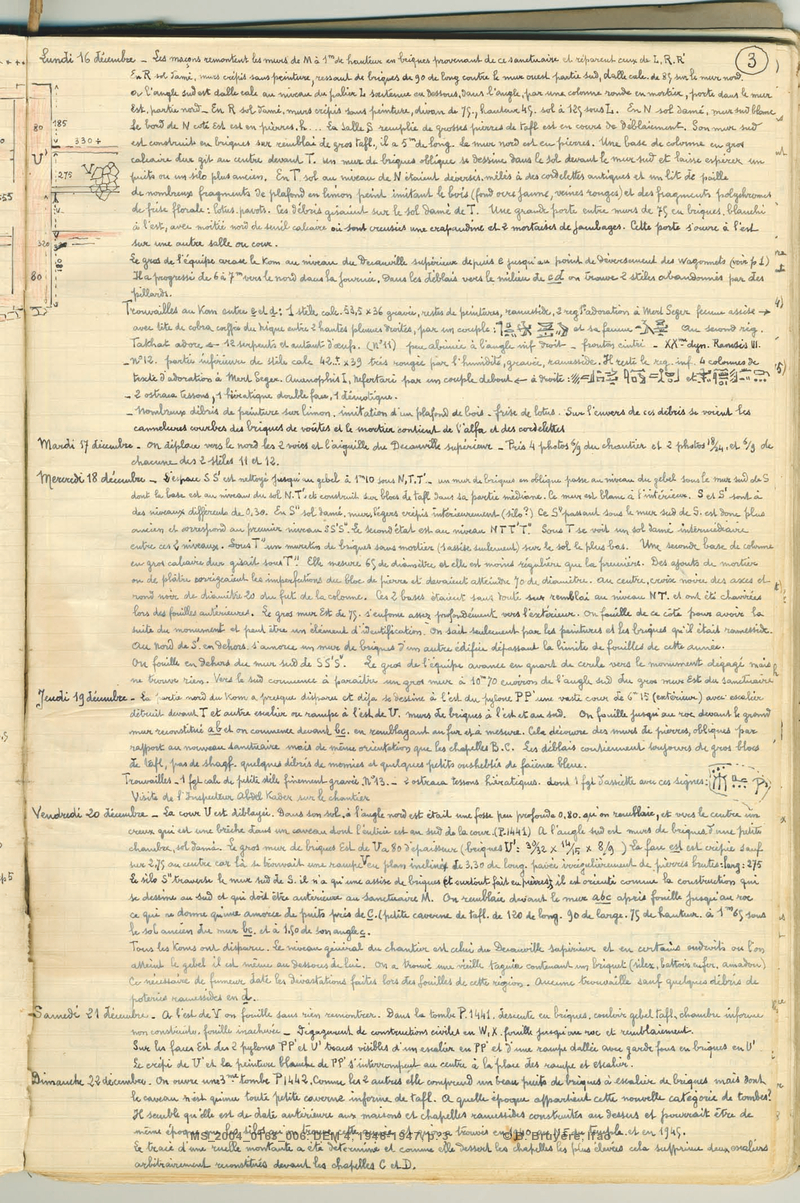 3
Lundi 16 décembre – Les maçons remontent les murs de M à 1m de hauteur en briques provenant de ce sanctuaire et réparent ceux de L, R, R'
En R sol damé, murs crépis sans peinture, ressaut de briques de 90 de long contre le mur ouest partie sud, dalle calc. de 85 sur le mur nord.
à l'angle sud est dalle calc au niveau du palier L soutenue en dessous, dans l'angle, par une colonne ronde en mortier, porte dans le mur
est, partie nord – En R sol damé, murs crépis sans peinture, divan de 75, hauteur 45. sol à 125 sous L. En N sol damé, mur sud blanc
le bord de N coté Est est en pierres. h... La salle S remplie de grosses pierres de tafl est en cours de déblaiement. Son mur sud
est construit en briques sur remblai de gros tafl, il a 5m de long. le mur nord est en pierres. Une base de colonne en gros
calcaire dur git au centre devant T. Un mur de briques oblique se dessine dans le sol devant le mur sud et laisse espérer un
puits ou un silo plus ancien. En T sol au niveau de N étaient déversés, mêlés à des cordelettes antiques et un lit de paille
de nombreux fragments de plafond en limon peint imitant le bois (fond ocre jaune, veines rouges) et des fragments polychromes
de frise florale : lotus. pavots. Ces débris gisaient sur le sol damé de T. Une grande porte entre murs de 75 en briques, blanchi
à l'est, avec moitié nord de seuil calcaire où sont creusées une crapaudine et 2 mortaises de jambages. Cette porte s'ouvre à l'est
sur une autre salle ou cour.
Le gros de l'équipe arase le Kom au niveau du Decauville supérieur depuis e jusqu'au point de déversement des wagonnets (voir p 1)
Il a progressé de 6 à 7m vers le nord dans la journée, Dans les déblais vers le milieu de cd on trouve 2 stèles abandonnées par des
pillards.
Trouvailles au Kom entre c et d : 1 stèle calc. 53,5 x 36 gravée, restes de peintures, ramesside, 2 reg. d'adoration à Mert Seger femme assise →
avec tête de cobra coiffée du disque entre 2 hautes plumes droites, par un couple : et sa femme Au second reg.
Takhat adore 12 serpents et autant d'œufs. (N°11) peu abimée à l'angle inf. droit – fronton cintré – XXme dyn. Ramsès III.
– N°12. partie inférieure de stèle calc 42 x 39 très rongée par l'humidité, gravée, ramesside. Il reste le reg. inf. 4 colonnes de
texte d'adoration à Mert Seger. Amenophis I, Nefertari par un couple debout ← à droite : et
– 2 ostraca tessons, 1 hiératique double face, 1 démotique.
– Nombreux débris de peinture sur limon, imitation d'un plafond de bois – frise de lotus. Sur l'envers de ces débris se voient les
cannelures courbes des briques de voûtes et le mortier contient de l'alfa et des cordelettes
Mardi 17 décembre – On déplace vers le nord les 2 voies et l'aiguille du Decauville supérieur – Pris 4 photos 6/9 du chantier et 2 photos 18/24, et 6/9 de
chacune des 2 stèles 11 et 12.
Mercredi 18 décembre – L'espace S S' est nettoyé jusqu'au gebel à 1m10 sous N, T, T' – un mur de briques en oblique passe au niveau du gebel sous le mur sud de S
dont la base est au niveau du sol N.T' et construit sur blocs de tafl dans sa partie médiane. le mur est blanc à l'intérieur. S et S' sont à
des niveaux différents de 0,30. En S" sol damé, murs légers crépis intérieurement (silo?) Ce S" passant sous le mur sud de S. est donc plus
ancien et correspond au premier niveau SS'S". Le second état est au niveau N T T' T". Sous T se voit un sol damé intermédiaire
entre ces 2 niveaux. Sous T" un muretin de briques sans mortier (1 assise seulement) sur le sol le plus bas. Une seconde base de colonne
en gros calcaire dur gisait sous T". Elle mesure 65 de diamètre et elle est moins régulière que la première. Des ajouts de mortier
ou de plâtre corrigeaient les imperfections du bloc de pierre et devaient atteindre 70 de diamètre. au centre, croix noire des axes et
rond noir de diamètre 20 du fut de la colonne. Les 2 bases étaient sans doute sur remblai au niveau NT. et ont été chavirées
lors des fouilles antérieures. Le gros mur Est de 75. s'enfonce assez profondément vers l'extérieur. On fouille de ce côté pour avoir la
suite du monument et peut être un élément d'identification. On sait seulement par les peintures et les briques qu'il était ramesside.
Au nord de S. en dehors, s'amorce un mur de briques d'un autre édifice dépassant la limite de fouilles de cette année.
On fouille en dehors du mur sud de SS'S". Le gros de l'équipe avance en quart de cercle vers le monument dégagé mais
ne trouve rien. Vers le sud commence à paraître un gros mur à 10m70 environ de l'angle sud du gros mur Est du sanctuaire
Jeudi 19 décembre – La partie nord du Kom a presque disparu et déjà se dessine à l'est du pylone PP' une vaste cour de 6m15 (extérieur) avec escalier
détruit devant T et autre escalier ou rampe à l'est de U. murs de briques à l'est et au sud. On fouille jusqu'au roc devant le grand
mur reconstitué ab et on commence devant bc. en remblayant au fur et à mesure. Cela découvre des murs de pierres, obliques par
rapport au nouveau sanctuaire mais de même orientation que les chapelles B.C. Les déblais contiennent toujours de gros blocs
de tafl, pas de shagf. quelques débris de momies et quelques petits oushebtis de faïence bleue.
Trouvailles – 1 fgt calc de petite stèle finement gravée N°13. – 2 ostraca tessons hiératiques. dont 1 fgt d'assiette avec ces signes:
Visite de l'Inspecteur Abdel Kader sur le chantier
Vendredi 20 décembre – La cour U est déblayée. Dans son sol, à l'angle nord est était une fosse peu profonde 0.80. qu'on remblaie, et vers le centre un
creux qui est une brèche dans un caveau dont l'entrée est au sud de la cour (P.1441) A l'angle sud est murs de briques d'une petite
chambre, sol damé. Le gros mur de briques Est de U a 80 d'épaisseur (briques U': 30/32 x 14/15 x 8/9.) la face est est crépie sauf
sur 2.75 au centre car là se trouvait une rampe V en plan incliné de 3.30 de long. pavée irrégulièrement de pierres brutes: larg: 275
Le silo S" traverse le mur sud de S. il n'a qu'une assise de briques (et surtout fait en pierres), il est orienté comme la construction qui
se dessine au sud et qui doit être antérieure au sanctuaire M. On remblaie devant le mur abc après fouille jusqu'au roc
ce qui ne donne qu'une amorce de puits près de C. (petite caverne de tafl. de 120 de long. 90 de large. 75 de hauteur. à 1m65 sous
le sol ancien du mur bc. et à 1.50 de son angle c.
Tous les koms ont disparu. Le niveau général du chantier est celui du Decauville supérieur et en certains endroits où l'on
atteint le gebel il est même au dessous de lui. On a trouvé une vieille taguia contenant un briquet (silex, battoir en fer, amadou)
Ce nécessaire de fumeur date les dévastations faites lors des fouilles de cette région. Aucune trouvaille sauf quelques débris de
poteries ramessides en d.
Samedi 21 décembre – A l'est de V on fouille sans rien rencontrer. Dans la tombe P.1441. descente en briques, couloir gebel tafl, chambre informe
non construite. fouille inachevée – Dégagement de constructions civiles en W, X. fouille jusqu'au roc et remblaiement.
Sur les faces Est des 2 pylones PP' et U' traces visibles d'un escalier en PP' et d'une rampe dallée avec garde fous en briques en U'
Le crépi de U' et la peinture blanche de PP' s'interrompent au centre à la place des rampe et escalier.
Dimanche 22 décembre. On ouvre une 3me tombe P.1442. Comme les 2 autres elle comprend un beau puits de briques à escalier de briques, mais dont
le caveau n'est qu'une toute petite caverne informe de tafl. A quelle époque appartient cette nouvelle catégorie de tombes?
Il semble qu'elle est de date antérieure aux maisons et chapelles ramessides construites au dessus et pourrait être de
même époque que les silos qu'on trouve cette année et qu'on trouva en 1940 au N.E du temple. et en 1945.
Le tracé d'une ruelle montante a été déterminé et comme elle dessert les chapelles les plus élevées cela supprime deux escaliers
arbitrairement reconstitués devant les chapelles C et D.
80
185
330
U'
275
V
320
80
MS_2004_0168_006. DEM 4. 1946-1947, p. 3
© B. Bruyère, Ifao